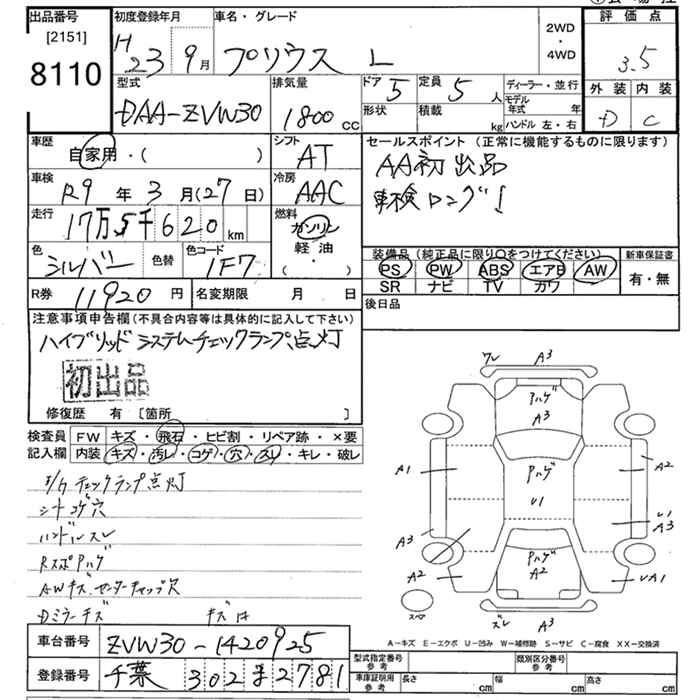 出品番号 初度登録年月 車名・グレード 2WD・4WD 評価点
[2151]
8110 H23 9月 プリウス L 3.5
型式 排気量 ドア 5 定員 5人 ディーラー・並行 外装 内装
DAA-ZVW30 1800cc 形状 積載 kg モデル年式 年 ハンドル 左・右 D C
車歴 自家用・( ) シフト AT セールスポイント (正常に機能するものに限ります)
車検 R9年3月(27日) 冷房 AAC AA初出品
走行 17万5千620km 燃料 ガソリン 軽油 ( ・ ) 車検ロング!
色 シルバー 色替 色コード 1F7 装備品 (純正品に限り○をつけてください) 新車保証書
PS PW ABS エアB AW 有・無
SR ナビ TV カワ
R券 11920円 名変期限 月 日 後日品
注意事項申告欄 (不具合内容等は具体的に記入して下さい)
ハイブリッドシステムチェックランプ点灯
初出品
修復歴 有 [箇所 ]
検査員 FW キズ・飛石・ヒビ割・リペア跡・×要
記入欄 内装 キズ・汚レ・コゲ・穴・スレ・キレ・破レ
チェックランプ点灯
シートコゲ穴
ハンドルスレ
RスポPハゲ
AWキズ、センターキャップ欠
Dミラーキズ
車台番号 ZVW30-1420925
登録番号 千葉 302 2781
A3
Pハゲ
A3
A1 Pハゲ A2
U1 U1
A3 A3
A2 Pハゲ A2 UA1
スペア スレ A3
A-キズ E-エクボ U-凹み W-補修跡 S-サビ C-腐食 XX-交換済
型式指定番号 参考 類別区分番号 参考
車庫証明用 参考 長さ cm 幅 cm 高さ cm